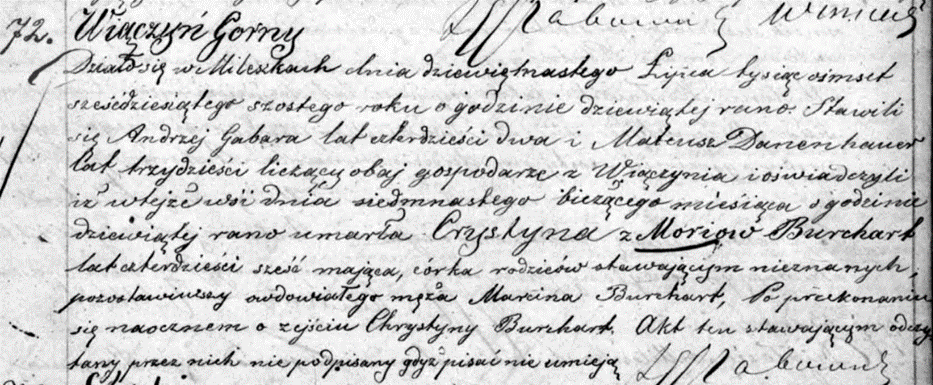 72. Wiączyń Gorny
Działo się w Mileszkach dnia dziewiętnastego Lipca tysiąc ośmset
sześćdziesiątego szostego roku o godzinie dziewiątej rano. Stawili
się Andrzej Gabara lat czterdzieści dwa i Mateusz Danenhauer
lat trzydzieści liczący obaj gospodarze z Wiączynia i oświadczyli
iż w tejże wsi dnia siedmnastego bieżącego miesiąca o godzinie
dziewiątej rano umarła Crystyna z Moriow Burchart
lat czterdzieści sześć mająca, córka rodziców stawającym nieznanych,
pozostawiwszy owdowiałego męża Marcina Burchart, Po przekonaniu
się naocznem o zejściu Chrystyny Burchart. Akt ten stawającym odczy
tany przez nich nie podpisany gdyż pisać nie umieją